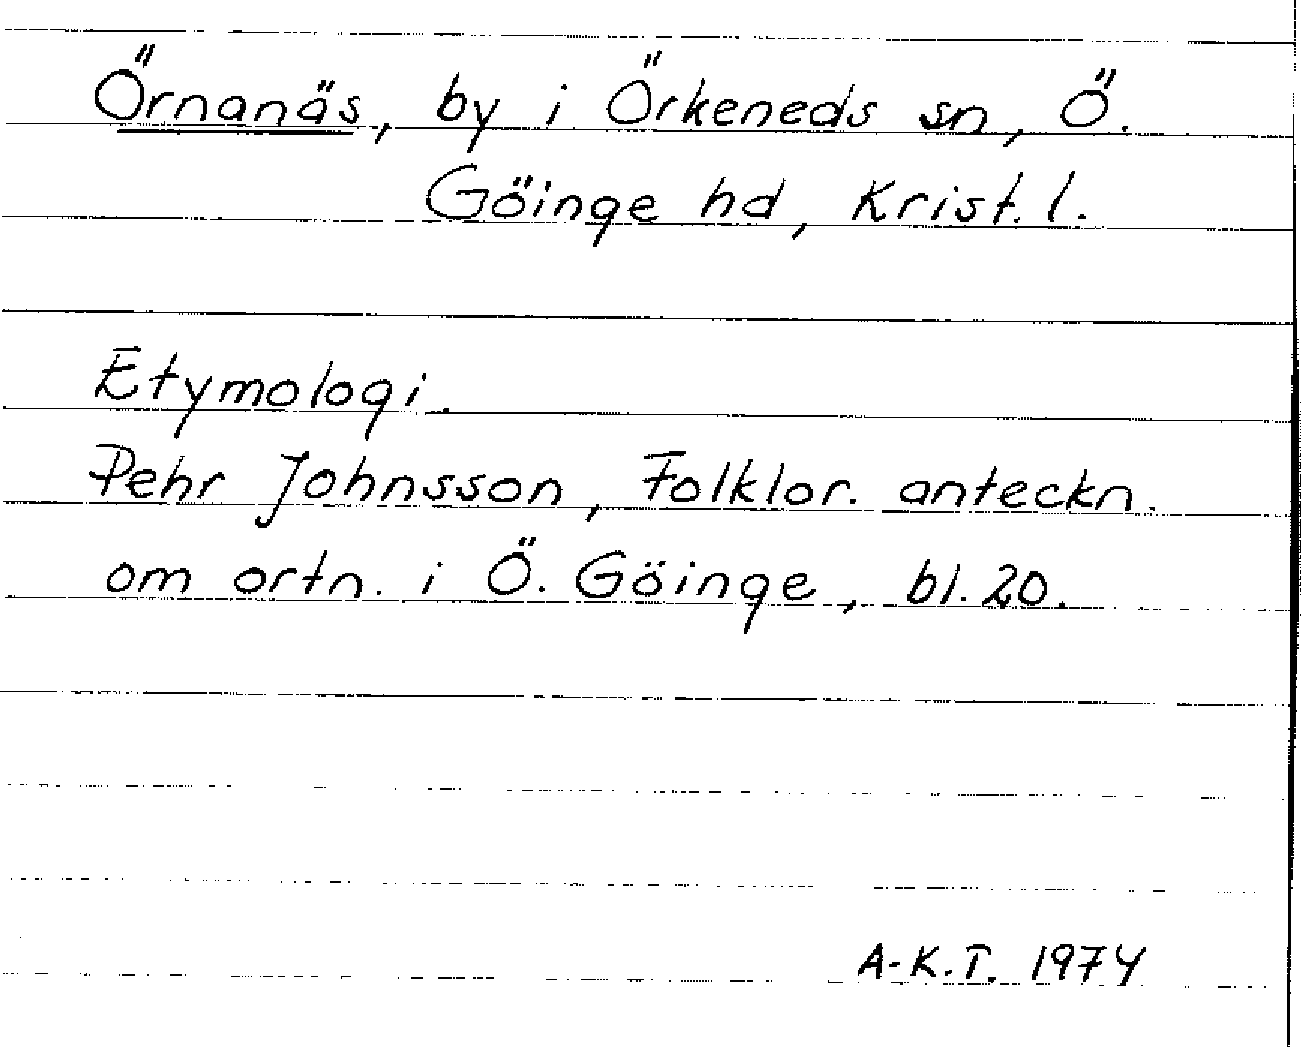 Örnanäs, by i Örkeneds sn, Ö.
Göinge hd, Krist. l.
Etymologi.
Pehr Johnsson, Folklor. anteckn.
om ortn. i Ö. Göinge, bl. 20.
A-K.T. 1974